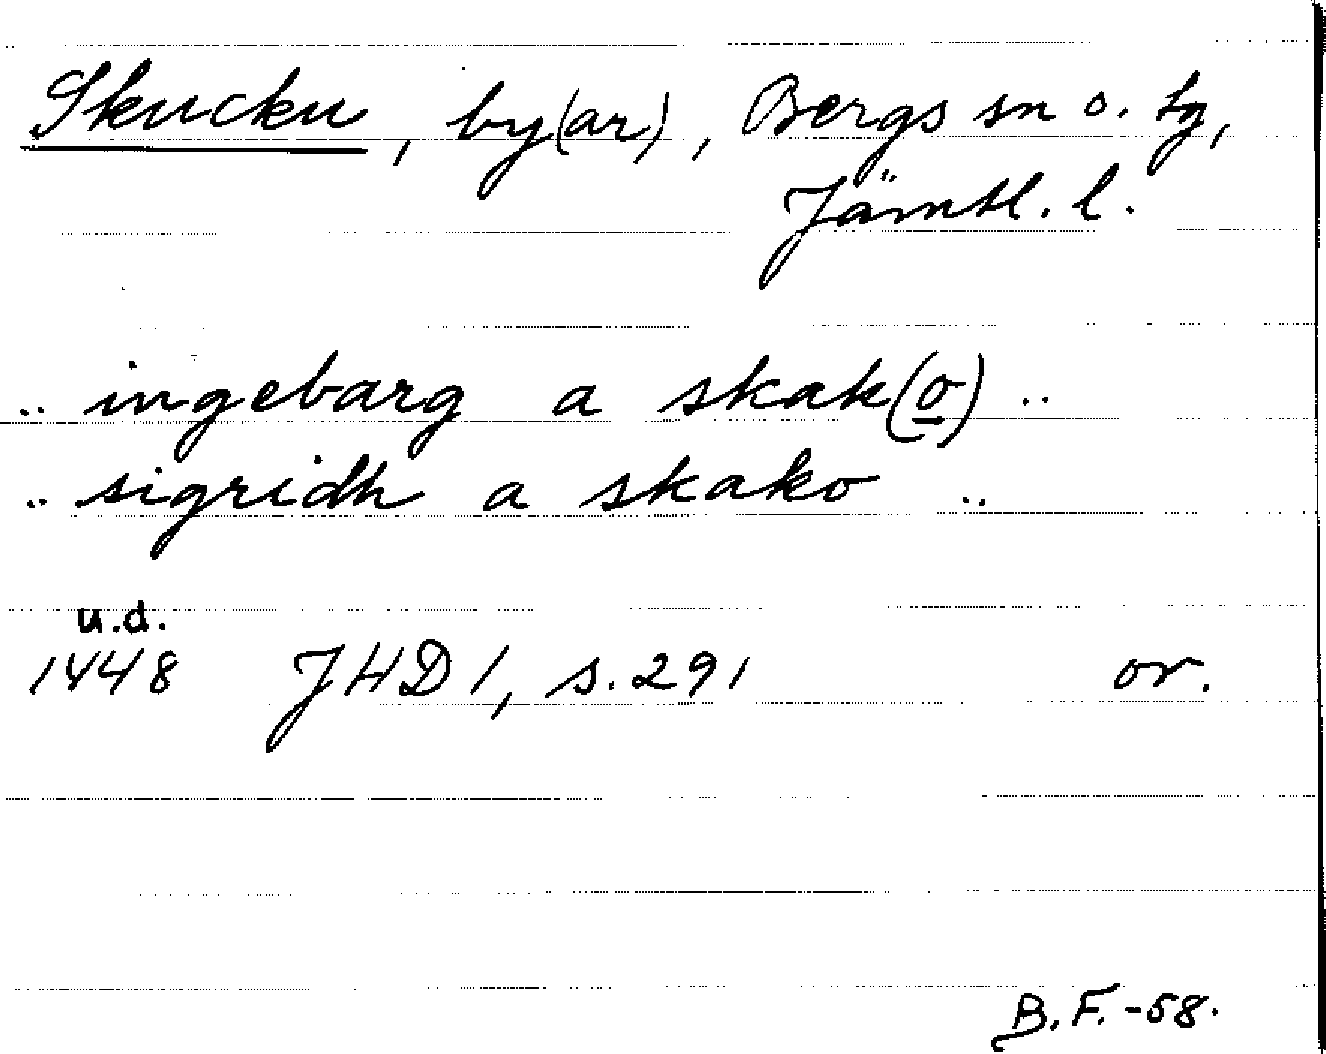 Skucku, by(ar), Bergs sn o. tg,
Jämtl. l.
.. ingebarg a skak(o) ..
.. sigridh a skako ..
u.d.
1448 JHD 1, s. 291 or.
B.F. -58.